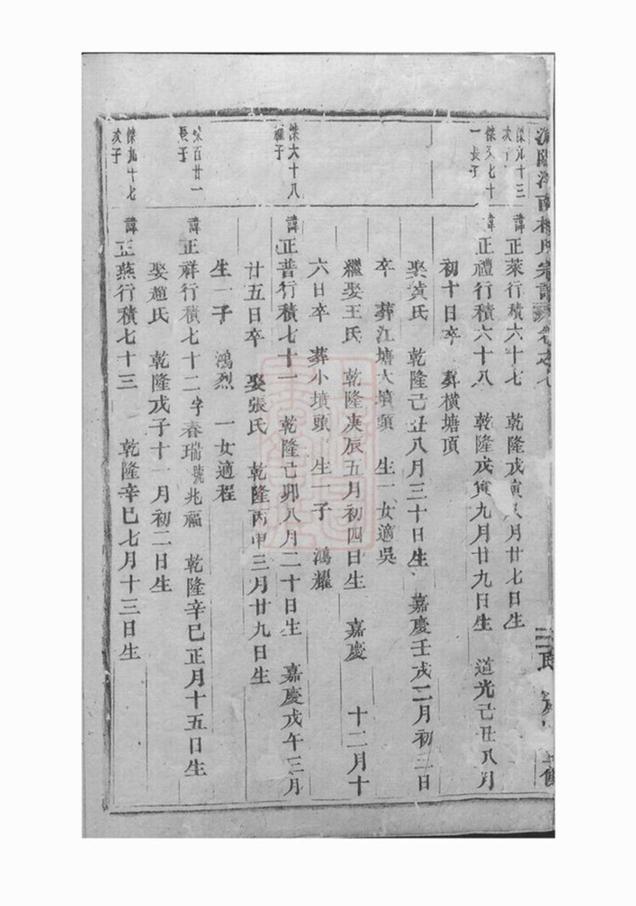 宗譜 卷之七
傑九十三
次子
諱正萊行積六十七 乾隆戊寅八月廿七日生
傑 七十
一長子
諱正禮行積六十八 乾隆戊寅九月廿九日生 道光己丑八月
初十日卒 葬橫塘頂
娶黃氏 乾隆己丑八月三十日生 嘉慶壬戌二月初二日
卒 葬江塘大墳頭 生一女適吳
繼娶王氏 乾隆庚辰五月初四日生 嘉慶 十二月十
六日卒 葬小墳頭 生一子 鴻耀
傑六十八
繼子
諱正普行積七十一 乾隆己卯八月二十日生 嘉慶戊午三月
廿五日卒 娶張氏 乾隆丙申三月廿九日生
生一子 鴻烈 一女適程
傑百廿一
長子
諱正祥行積七十二字春瑞號兆福 乾隆辛巳正月十五日生
娶趙氏 乾隆戊子十一月初二日生
傑九十七
次子
諱正燕行積七十三 乾隆辛巳七月十三日生